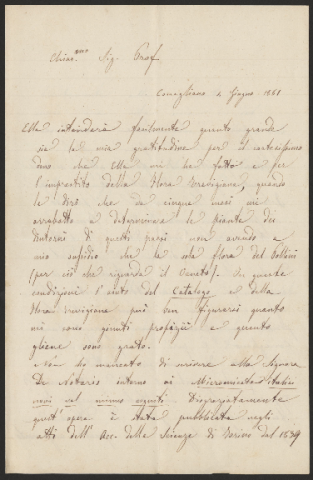 Chiar.mo Sig. Prof.
Conegliano 4 Giugno 1861
Ella intenderà facilmente quanto grande
sia la mia gratitudine per il cortesissimo
dono che Ella mi ha fatto e per
l'imprestito della Flora Trevigiana, quando
le dirò che da cinque mesi mi
arrabatto a determinare le piante dei
dintorni di questi paesi non avendo a
mio sussidio che la sola flora del Pollini
(per ciò che riguarda il Veneto). In queste
condizioni l'aiuto del Catalogo e della
Flora trevigiana può ben figurarsi quanto
mi sono giunti propizii e quanto
gliene sono grato.
Non ho mancato di scrivere alla Signora
De Notaris intorno ai Micromiceti Italici
novi vel minus cogniti. Disgraziatamente
quest'opera è stata pubblicata negli
atti dell'Acc. delle Scienze di Torino dal 1839